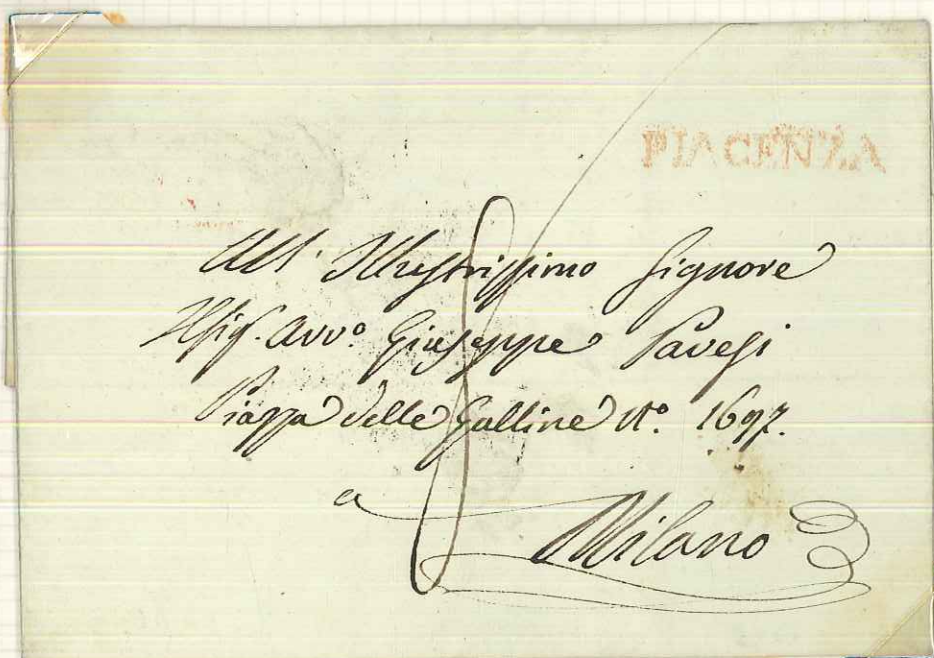 PIACENZA
All' Illustrissimo Signore
Il Sig. Avvo. Giuseppe Pavesi
Piazza delle Galline No. 1697.
a
Milano